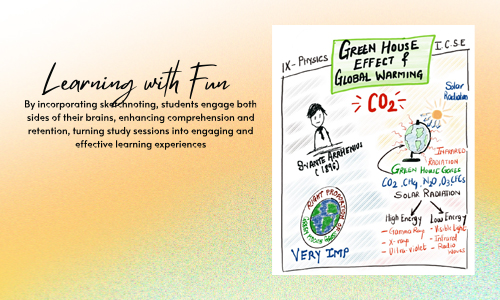 Learning with Fun
By incorporating sketchnoting, students engage both
sides of their brains, enhancing comprehension and
retention, turning study sessions into engaging and
effective learning experiences
IX - PHYSICS
GREEN HOUSE
EFFECT &
GLOBAL WARMING
I.C.S.E
CO2
Solar
Radiation
SVANTE ARRHENIUS
(1896)
INFRARED
RADIATION
GREEN HOUSE GASES
CO2, CH4, N2O, O3, CFCs
SOLAR RADIATION
High Energy
- Gamma Ray
- X-ray
- Ultra violet
Low Energy
- Visible Light
- Infrared
- Radio
Waves
RIGHT PROPORTION OF
VERY IMP